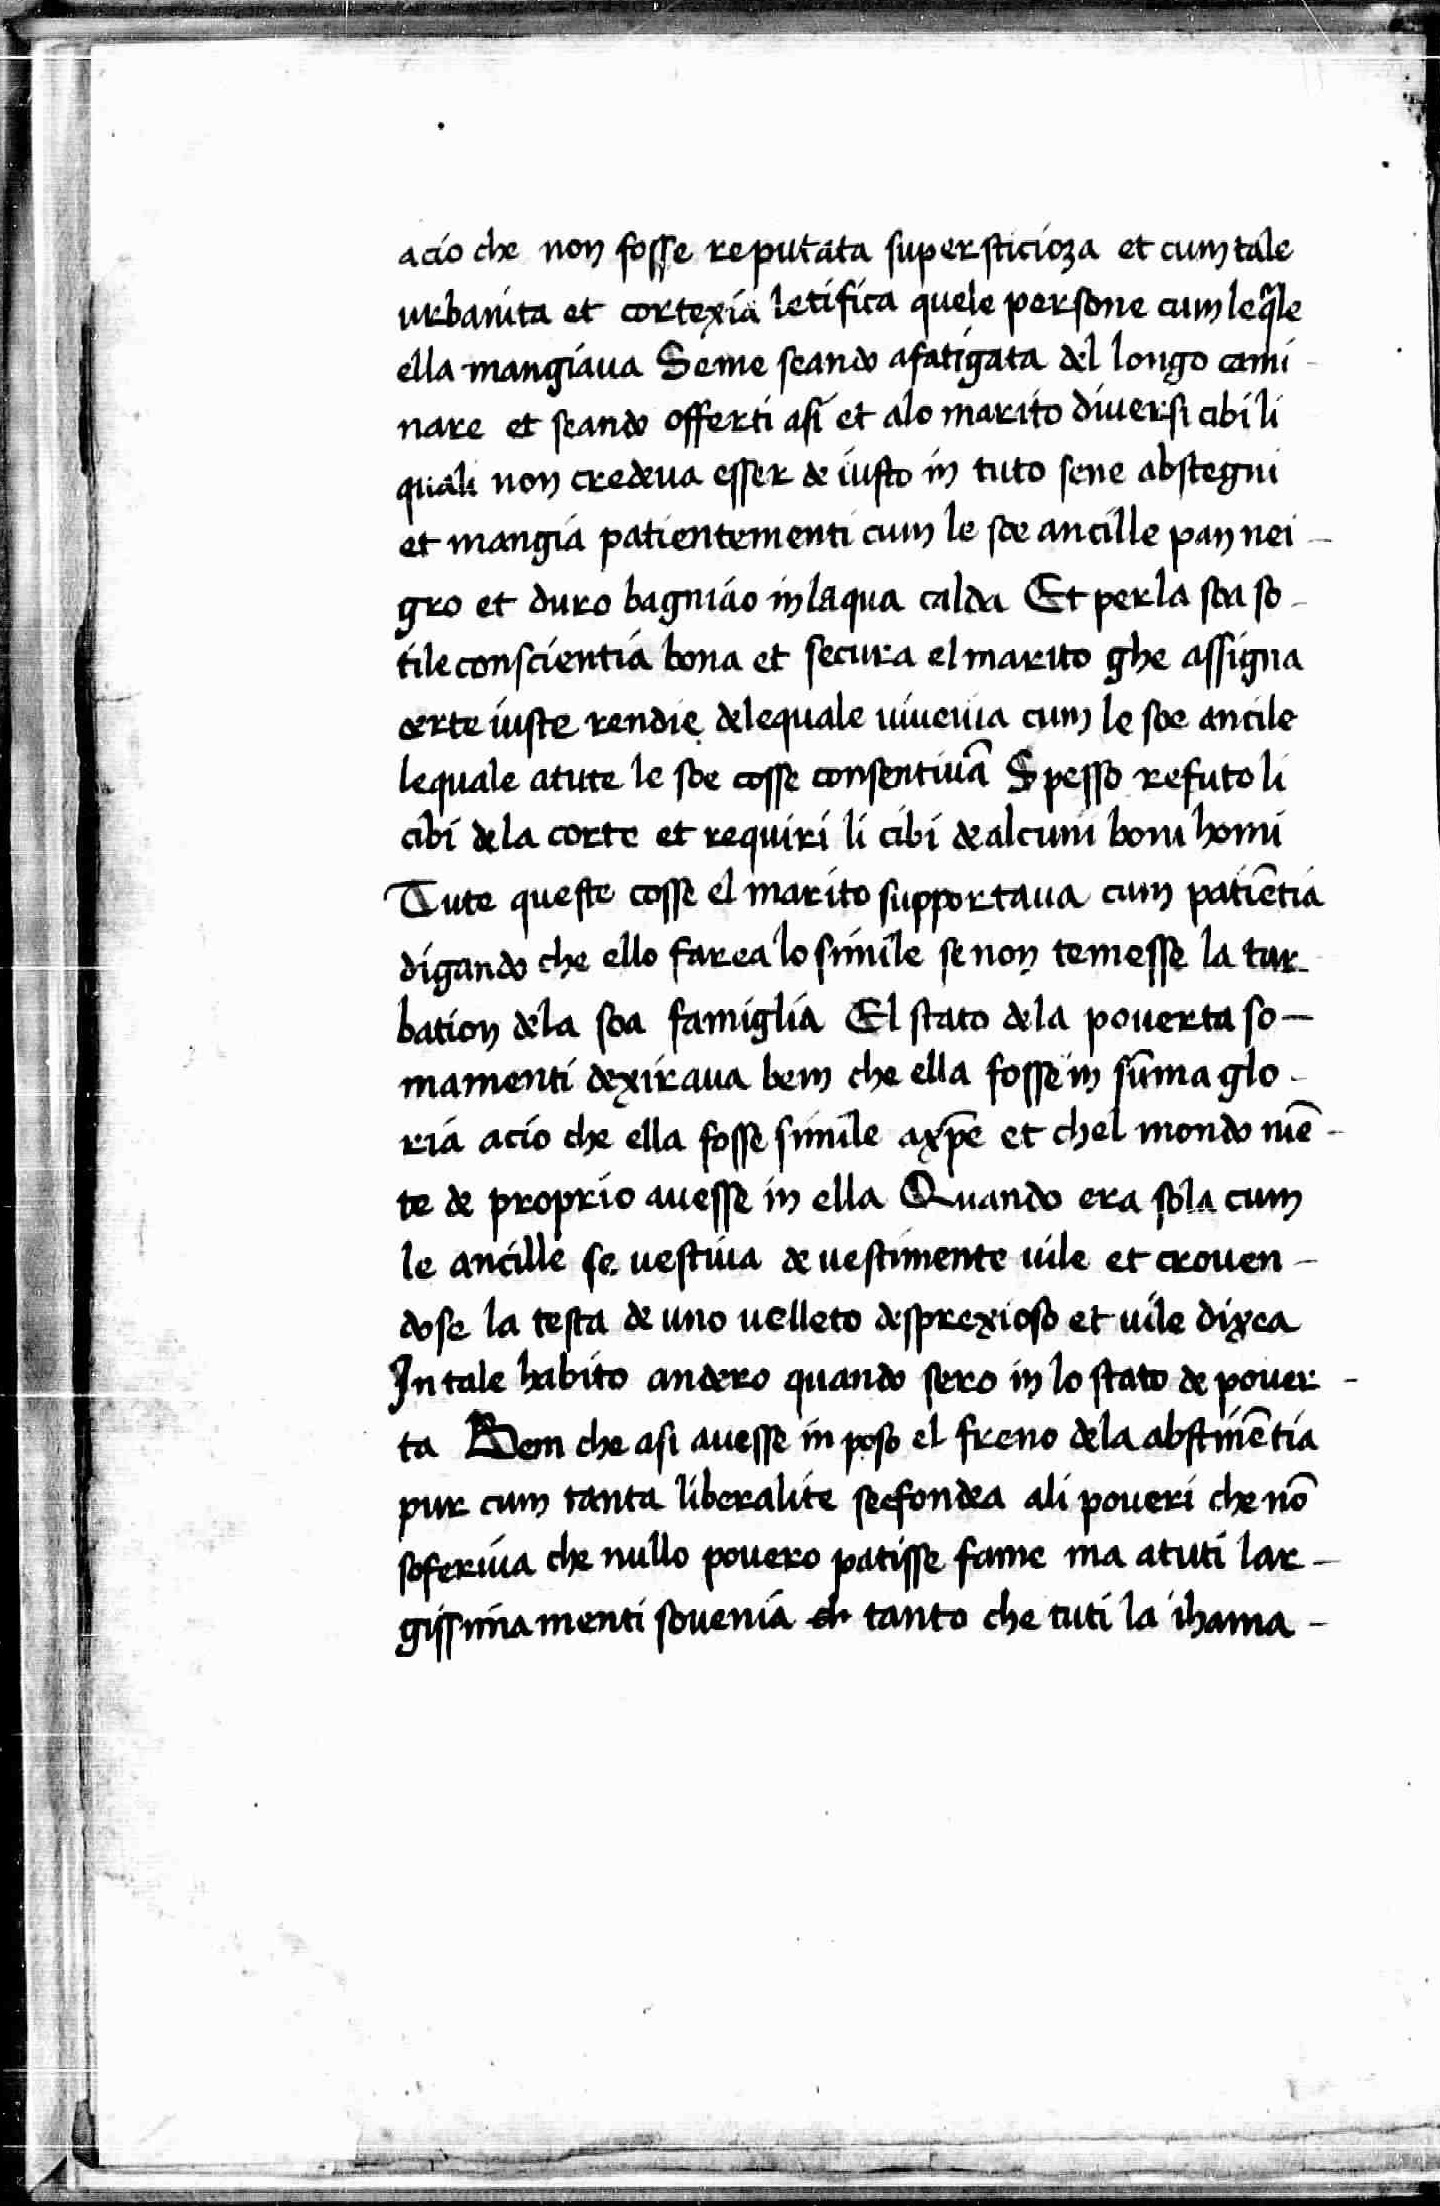 acio che non fosse reputata supersticioza et cum tale
urbanita et cortexia letifica quele persone cum leq̃le
ella mangiaua Seme seando afatigata del longo cami-
nare et seando offerti asi et alo marito diuersi cibi li
quali non credeua esser de iusto in tuto sene abstegni
et mangia patientementi cum le soe ancille pan nei-
gro et duro bagniao in laqua calda Et per la soa so-
tile conscientia bona et secura el marito ghe assigna
certe iuste rendie delequale uiueuia cum le soe ancile
lequale atute le soe cosse consentiuã Spesso refuto li
cibi dela corte et requiri li cibi de alcuni boni homi
Tute queste cosse el marito supportaua cum patiẽtia
digando che ello farea lo simile se non temesse la tur-
bation dela soa famiglia El stato dela pouerta so-
mamenti dexiraua bem che ella fosse in sũma glo-
ria acio che ella fosse simile axp̃e et chel mondo niẽ-
te de proprio auesse in ella Quando era sola cum
le ancille se uestiua de uestimente uile et crouen-
dose la testa de uno uelleto desprexioso et uile dixea
In tale habito andero quando sero in lo stato de pouer-
ta Bem che asi auesse in poso el freno dela abstinẽtia
pur cum tanta liberalite se efondea ali poueri che nõ
soferiua che nullo pouero patisse fame ma atuti lar-
gissima menti souenia tanto che tuti la ihama-